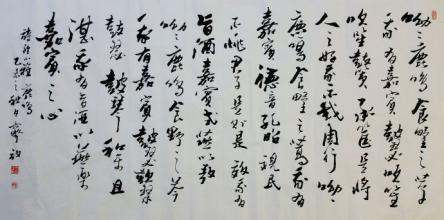 呦呦鹿鳴食野之苹
我有嘉賓鼓瑟吹笙
吹笙鼓簧承筐是將
人之好我示我周行呦呦
鹿鳴食野之蒿我有
嘉賓德音孔昭視民
不恌君子是則是效我有
旨酒嘉賓式燕以敖
呦呦鹿鳴食野之芩
我有嘉賓鼓瑟鼓琴
鼓瑟鼓琴和樂且
湛我有旨酒以燕樂
嘉賓之心
詩經小雅鹿鳴